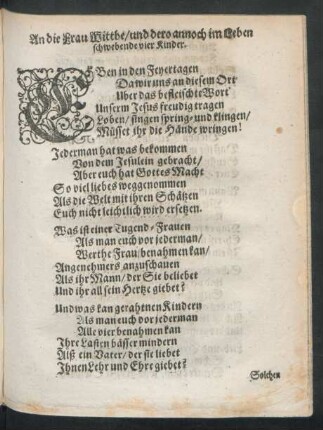 An die Frau Witthe/und dero annoch im Leben
schwebende vier Kinder.
EBen in den Feyertagen
Da wir uns an diesem Ort
Uber das befleischte Wort
Unserm Jesus freudig tragen
Loben/ singen spring- und klingen/
Müsset ihr die Hände wringen!
Jederman hat was bekommen
Von dem Jesulein gebracht/
Aber euch hat Gottes Macht
So viel liebes weggenommen
Als die Welt mit ihren Schätzen
Euch nicht leichtlich wird ersetzen.
Was ist einer Tugend-Frauen
Als man euch vor jederman/
Werthe Frau/ benahmen kan/
Angenehmers anzuschauen
Als ihr Mann/ der Sie beliebet
Und ihr all sein Hertze giebet?
Und was kan gerahtnen Kindern
Als man euch vor jederman
Alle vier benahmen kan
Ihre Lasten bässer mindern
Alß ein Vater/ der sie liebet
Ihnen Lehr und Ehre giebet?
Solchen